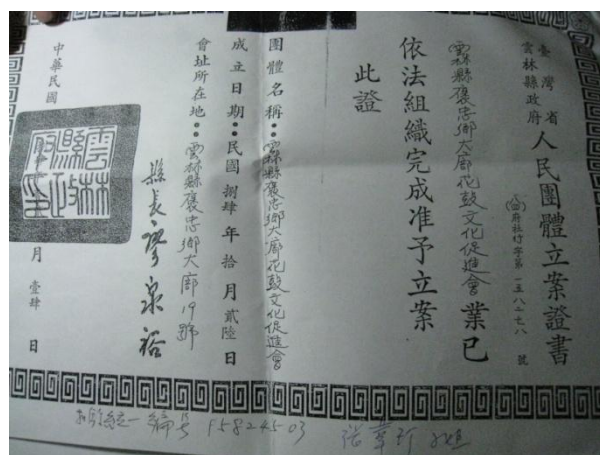 臺灣省
雲林縣政府
人民團體立案證書
(八四)府社行字第一五八二七八號
雲林縣褒忠鄉大廍花鼓文化促進會業已
依法組織完成准予立案
此證
團體名稱：雲林縣褒忠鄉大廍花鼓文化促進會
成立日期：民國捌肆年拾月貳陸日
會址所在地：雲林縣褒忠鄉大廍19號
縣長廖泉裕
中華民國
月壹肆日
雲林縣政府印
統一編号 15824503